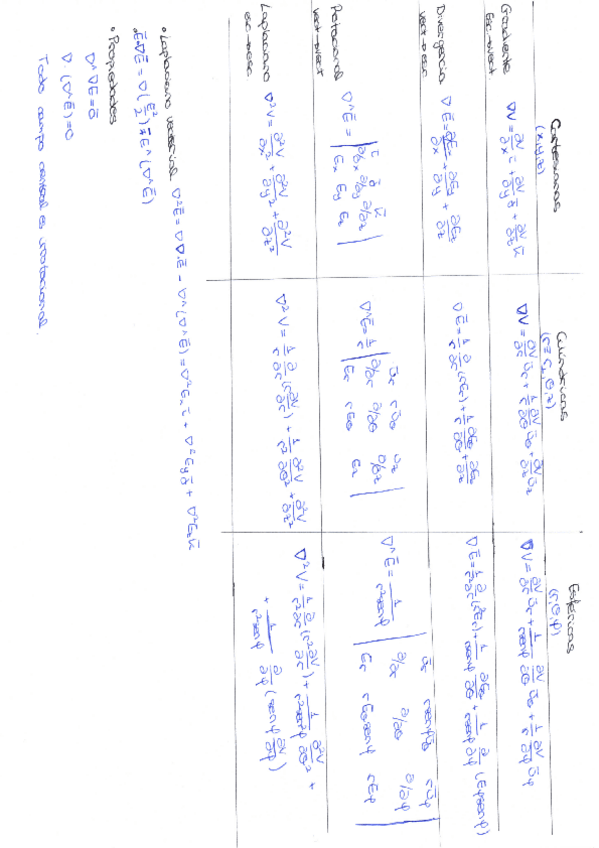 Cartesianas Cilíndricas Esféricas
(x,y,z) (r≡r_xy,θ,z) (r,θ,φ)
Gradiente
esc→vect
∇V = ∂V/∂x i + ∂V/∂y j + ∂V/∂z k
∇V = ∂V/∂r ūr + 1/r ∂V/∂θ ūθ + ∂V/∂z ūz
∇V = ∂V/∂r ūr + 1/(r senφ) ∂V/∂θ ūθ + 1/r ∂V/∂φ ūφ
Divergencia
vect→esc
∇Ē = ∂Ex/∂x + ∂Ey/∂y + ∂Ez/∂z
∇Ē = 1/r ∂/∂r (rEr) + 1/r ∂Eθ/∂θ + ∂Ez/∂z
∇Ē = 1/r² ∂/∂r (r²Er) + 1/(r senφ) ∂Eθ/∂θ + 1/(r senφ) ∂/∂φ (Eφ senφ)
Rotacional
vect→vect
∇^Ē = | i j k
∂/∂x ∂/∂y ∂/∂z
Ex Ey Ez |
∇^Ē = 1/r | ūr rūθ ūz
∂/∂r ∂/∂θ ∂/∂z
Er rEθ Ez |
∇^Ē = 1/(r² senφ) | ūr r senφ ūθ rūφ
∂/∂r ∂/∂θ ∂/∂φ
Er rEθ senφ rEφ |
Laplaciano
esc→esc
∇²V = ∂²V/∂x² + ∂²V/∂y² + ∂²V/∂z²
∇²V = 1/r ∂/∂r (r ∂V/∂r) + 1/r² ∂²V/∂θ² + ∂²V/∂z²
∇²V = 1/r² ∂/∂r (r² ∂V/∂r) + 1/(r² sen²φ) ∂²V/∂θ² +
+ 1/(r² senφ) ∂/∂φ (senφ ∂V/∂φ)
• Laplaciano vectorial ∇²Ē = ∇∇Ē - ∇^(∇^Ē) = ∇²Ex i + ∇²Ey j + ∇²Ez k
Ē∇Ē = ∇(E²/2) Ē^(∇^Ē)
• Propiedades
∇^∇Ē = 0̄
∇·(∇^Ē) = 0
Todo campo central es irrotacional.